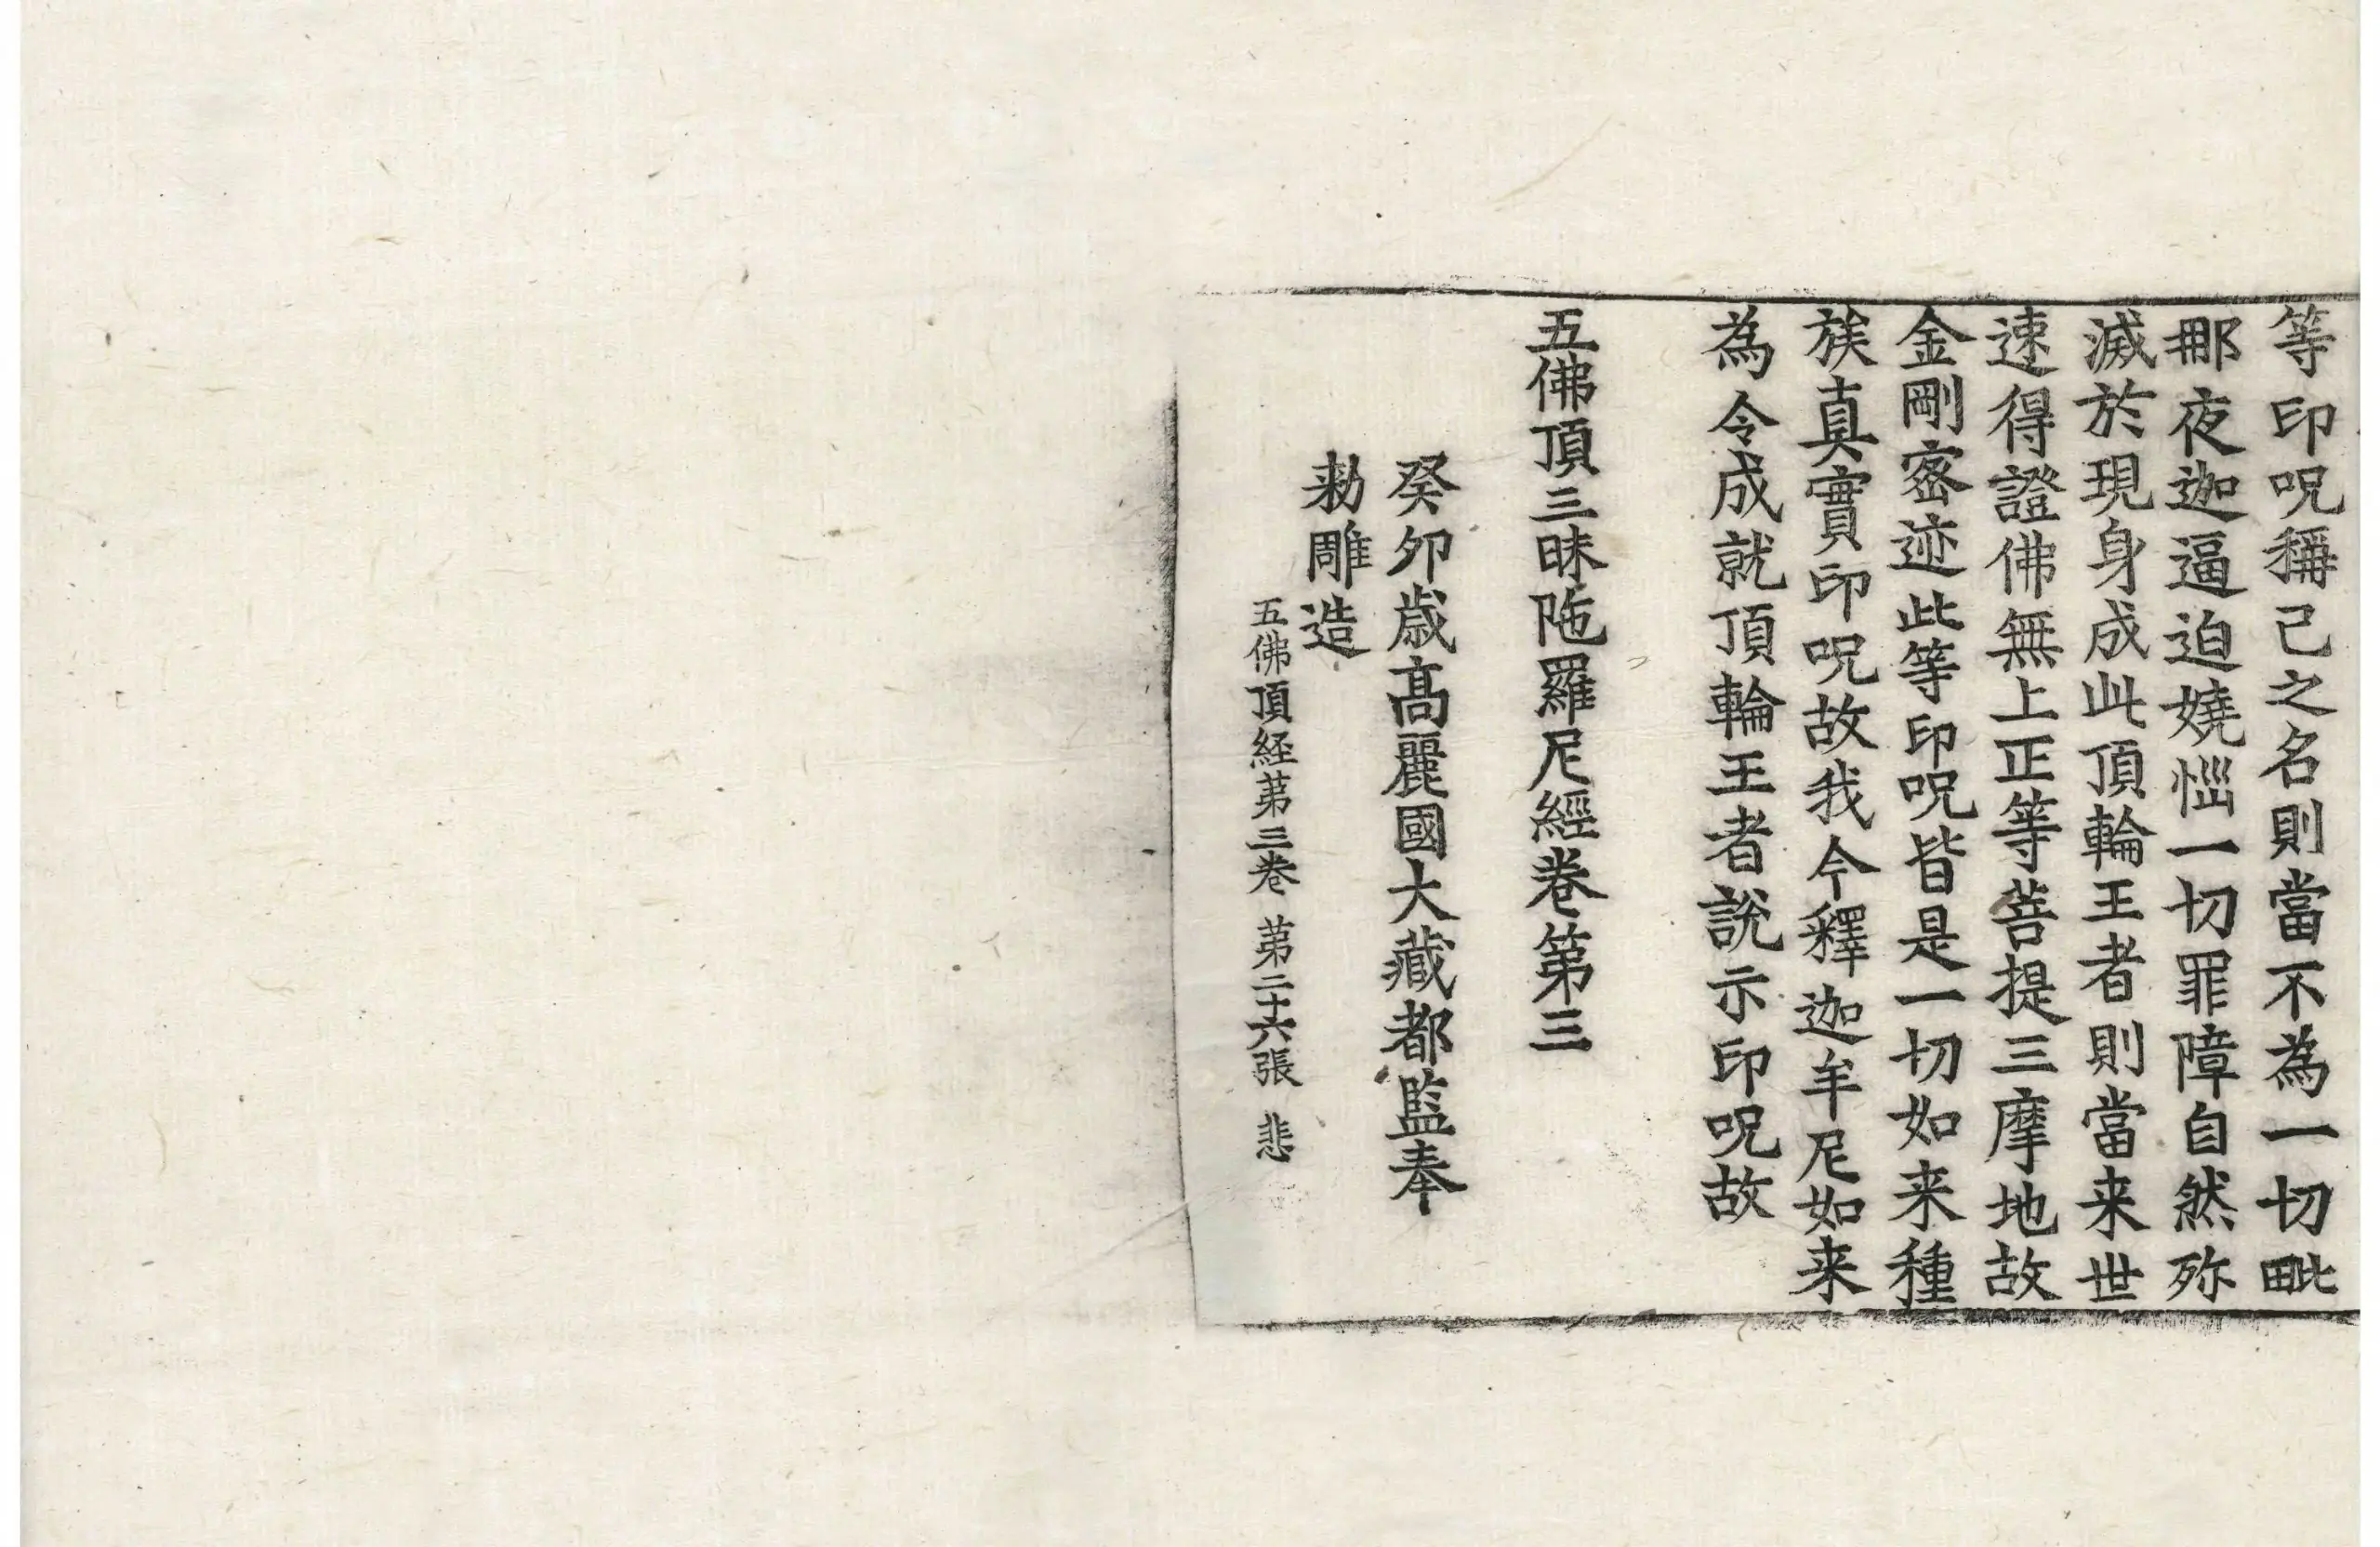 等印呪稱己之名則當不為一切毗
那夜迦逼迫嬈惱一切罪障自然殄
滅於現身成此頂輪王者則當来世
速得證佛無上正等菩提三摩地故
金剛密迹此等印呪皆是一切如来種
族真實印呪故我今釋迦牟尼如来
為令成就頂輪王者說示印呪故
五佛頂三昧陁羅尼經卷第三
癸卯歳髙麗國大藏都監奉
勑雕造
五佛頂経苐三卷 苐二十六張 悲